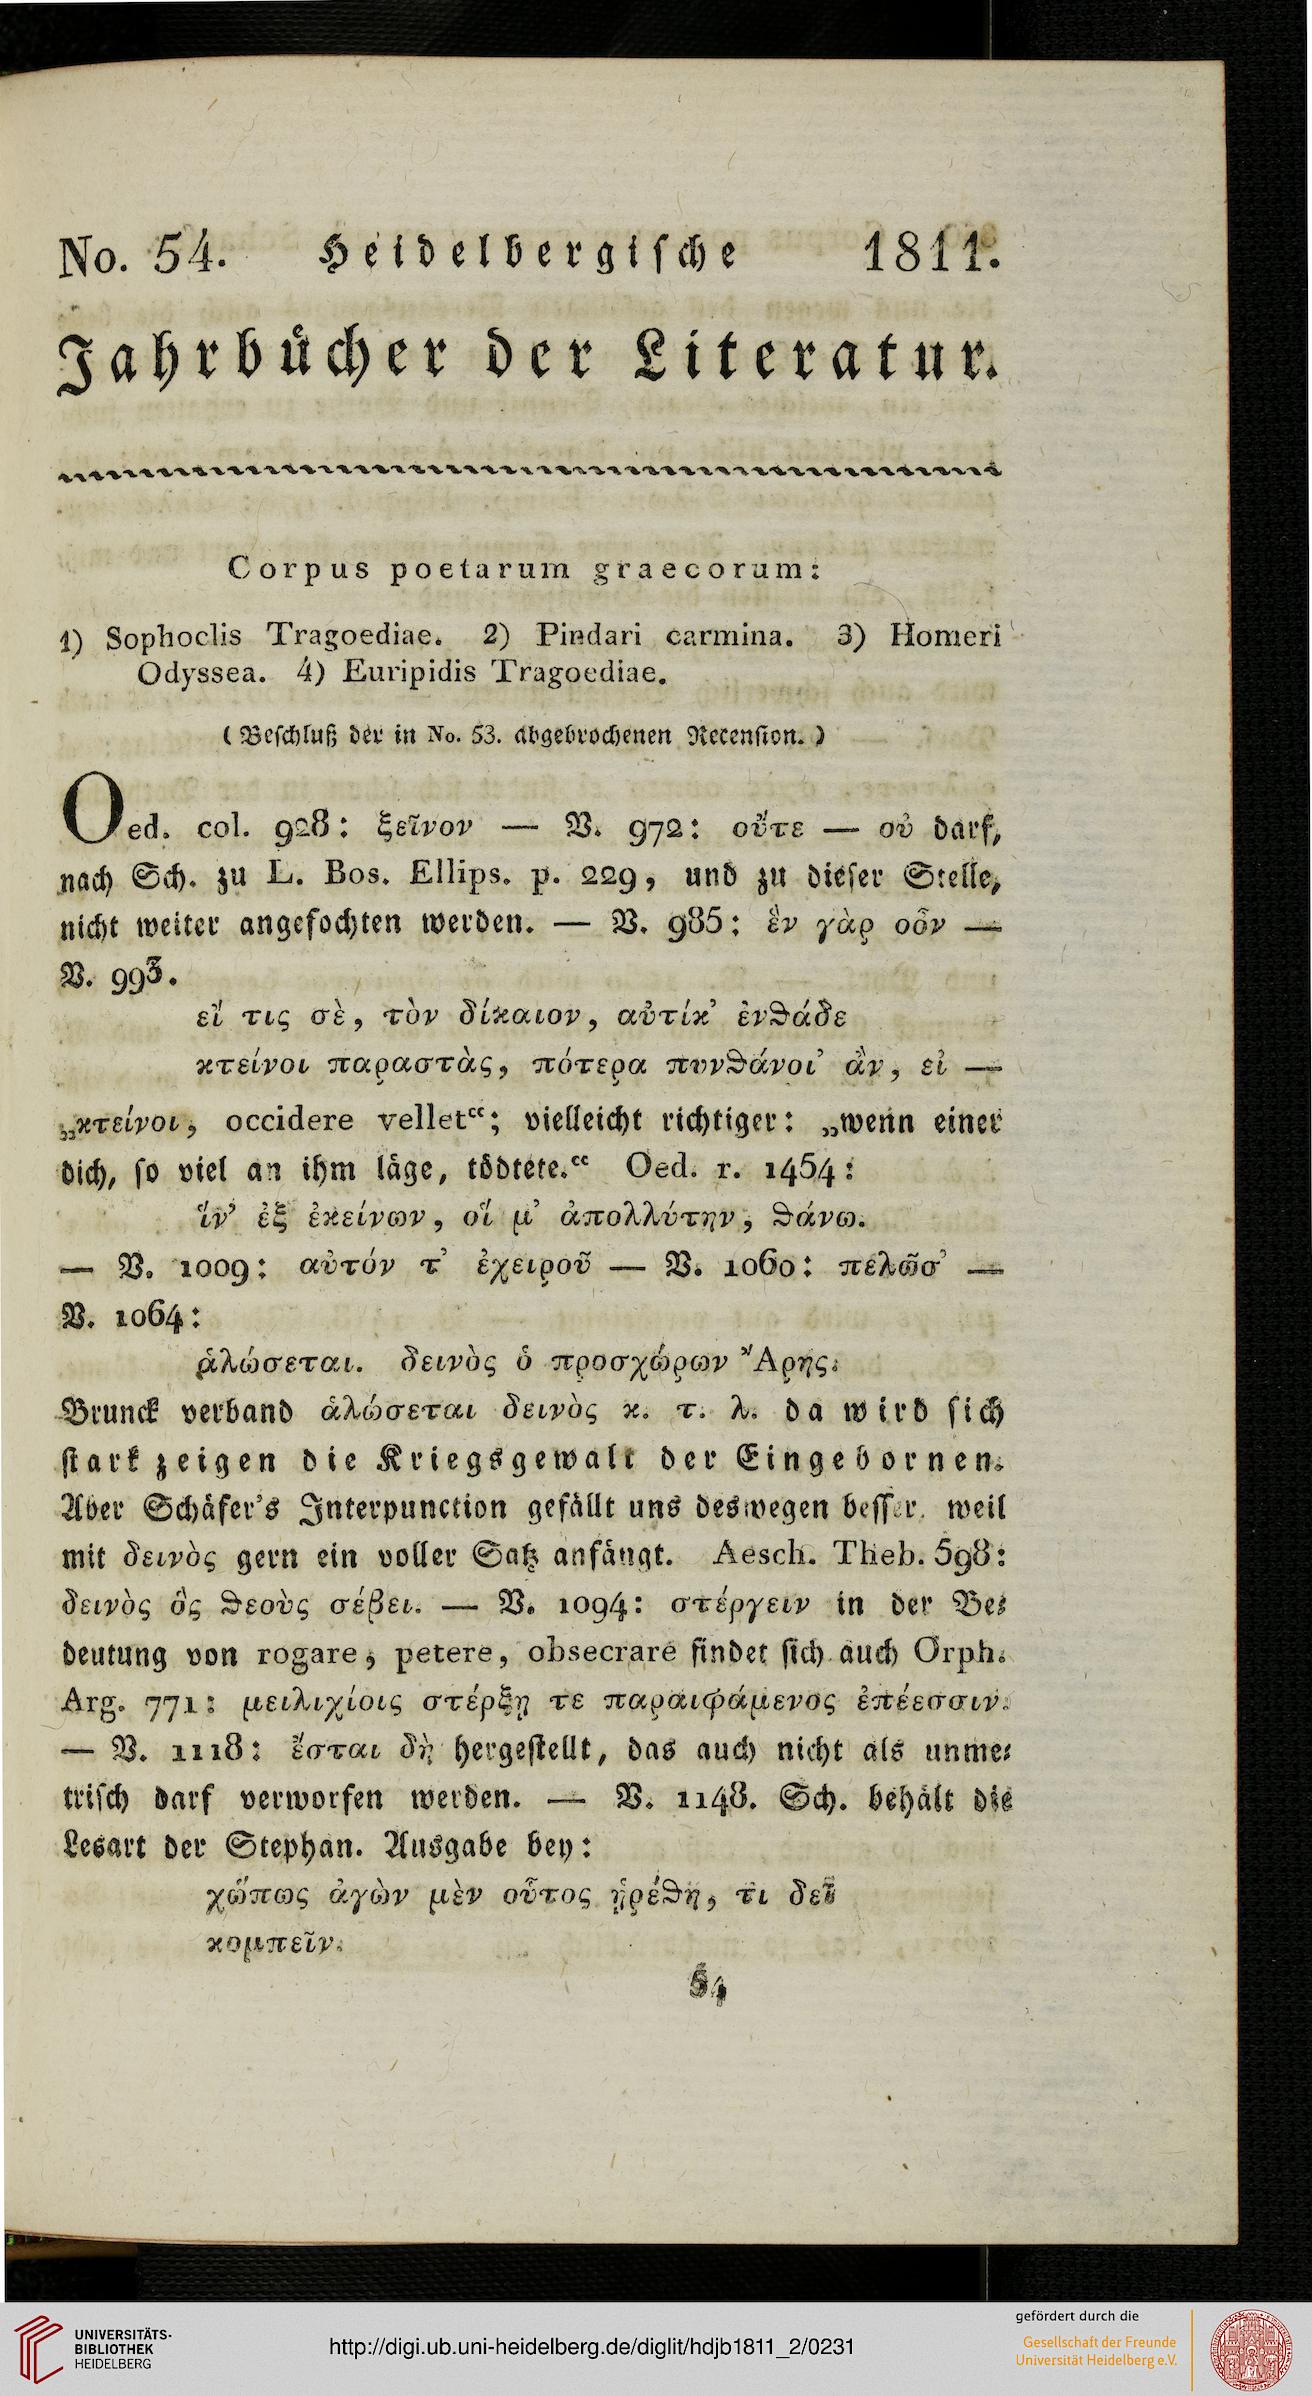 No. 54. Heidelbergische 1811.
Jahrbücher der Literatur.
Corpus poetarum graecorum:
1) Sophoclis Tragoediae. 2) Pindari carmina. 3) Homeri
Odyssea. 4) Euripidis Tragoediae.
(Beschluß der in No. 53. abgebrochenen Recension.)
Oed. col. 928: ξεῖνον — V. 972: οὔτε — οὐ darf,
nach Sch. zu L. Bos. Ellips. p. 229, und zu dieser Stelle,
nicht weiter angefochten werden. — V. 985: ἓν γὰρ οὖν —
V. 993.
εἴ τις σὲ, τὸν δίκαιον, αὐτίκ' ἐνθάδε
κτείνοι παραστὰς, πότερα πυνθάνοι' ἂν, εἰ —
„κτείνοι, occidere vellet“; vielleicht richtiger: „wenn einer
dich, so viel an ihm läge, tödtete.“ Oed. r. 1454:
ἵν' ἐξ ἐκείνων, οἵ μ' ἀπολλύτην, θάνω.
— V. 1009: αὐτόν τ' ἐχειροῦ — V. 1060: πελῶσ' —
V. 1064:
ἁλώσεται. δεινὸς ὁ προσχώρων Ἄρης.
Brunck verband ἁλώσεται δεινὸς κ. τ. λ. da wird sich
stark zeigen die Kriegsgewalt der Eingebornen.
Aber Schäfer's Interpunction gefällt uns deswegen besser, weil
mit δεινὸς gern ein voller Satz anfängt. Aesch. Theb. 598:
δεινὸς ὃς θεοὺς σέβει. — V. 1094: στέργειν in der Be-
deutung von rogare, petere, obsecrare findet sich auch Orph.
Arg. 771: μειλιχίοις στέρξῃ τε παραιφάμενος ἐπέεσσιν.
— V. 1118: ἔσται δὴ hergestellt, das auch nicht als unme-
trisch darf verworfen werden. — V. 1148. Sch. behält die
Lesart der Stephan. Ausgabe bey:
χὤπως ἀγὼν μὲν οὗτος ᾑρέθη, τι δεῖ
κομπεῖν.
54
UNIVERSITÄTS-
BIBLIOTHEK
HEIDELBERG
http://digi.ub.uni-heidelberg.de/diglit/hdjb1811_2/0231
gefördert durch die
Gesellschaft der Freunde
Universität Heidelberg e.V.